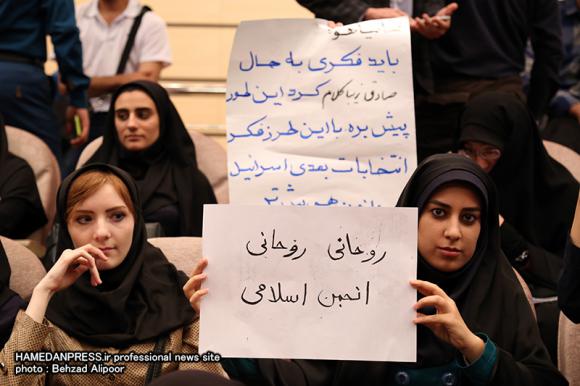 باید فکری به حال
صادق زیبا کلام کرد این طور
پیش بره با این طرز فکر
انتخابات بعدی اسرائیل
روحانی روحانی
انجمن اسلامی
HAMEDANPRESS.ir professional news site
photo : Behzad Alipoor